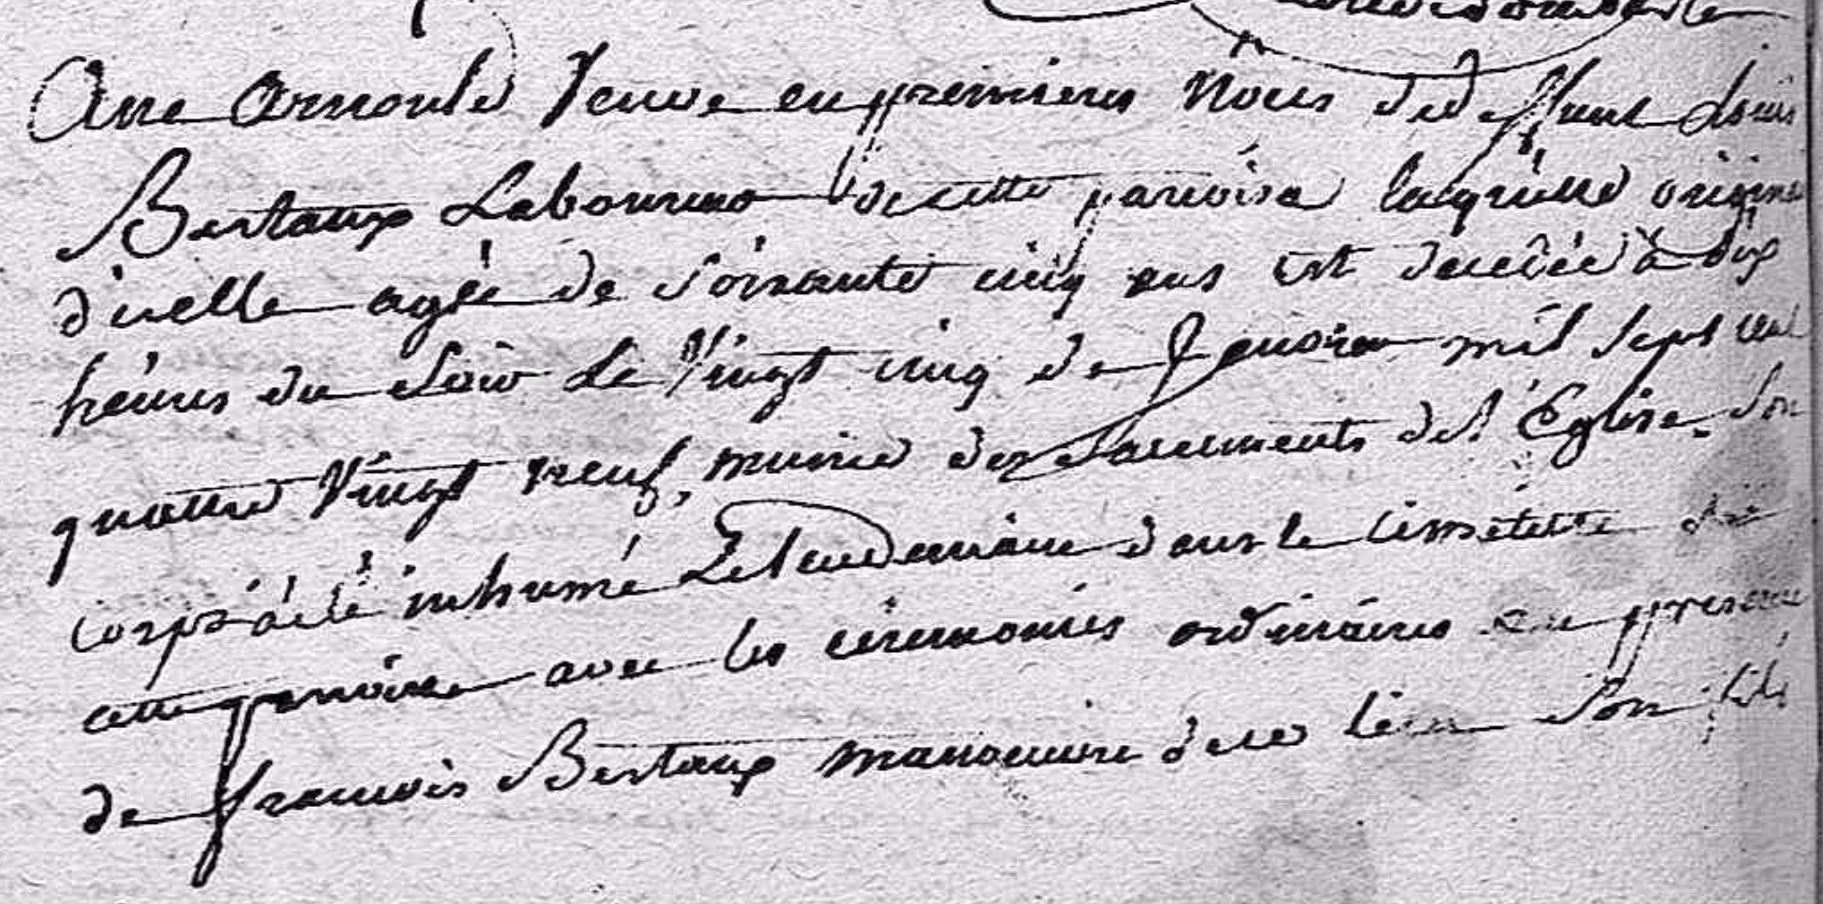 Anne Arnould Veuve en premieres Noces de deffunt Louis
Bertaux Laboureur de cette paroisse laquelle origine
d'icelle agée de soixante cinq ans est decedée à dix
heures du soir le Vingt cinq de Janvier mil sept cent
quattre Vingt neuf, munie des sacrements de l'Eglise. son
corps à été inhumé Le Lendemain dans le cimetiere de
cette paroisse avec les cérémonies ordinaires en presence
de francois Bertaux manoeuvre de ce lieu son fils